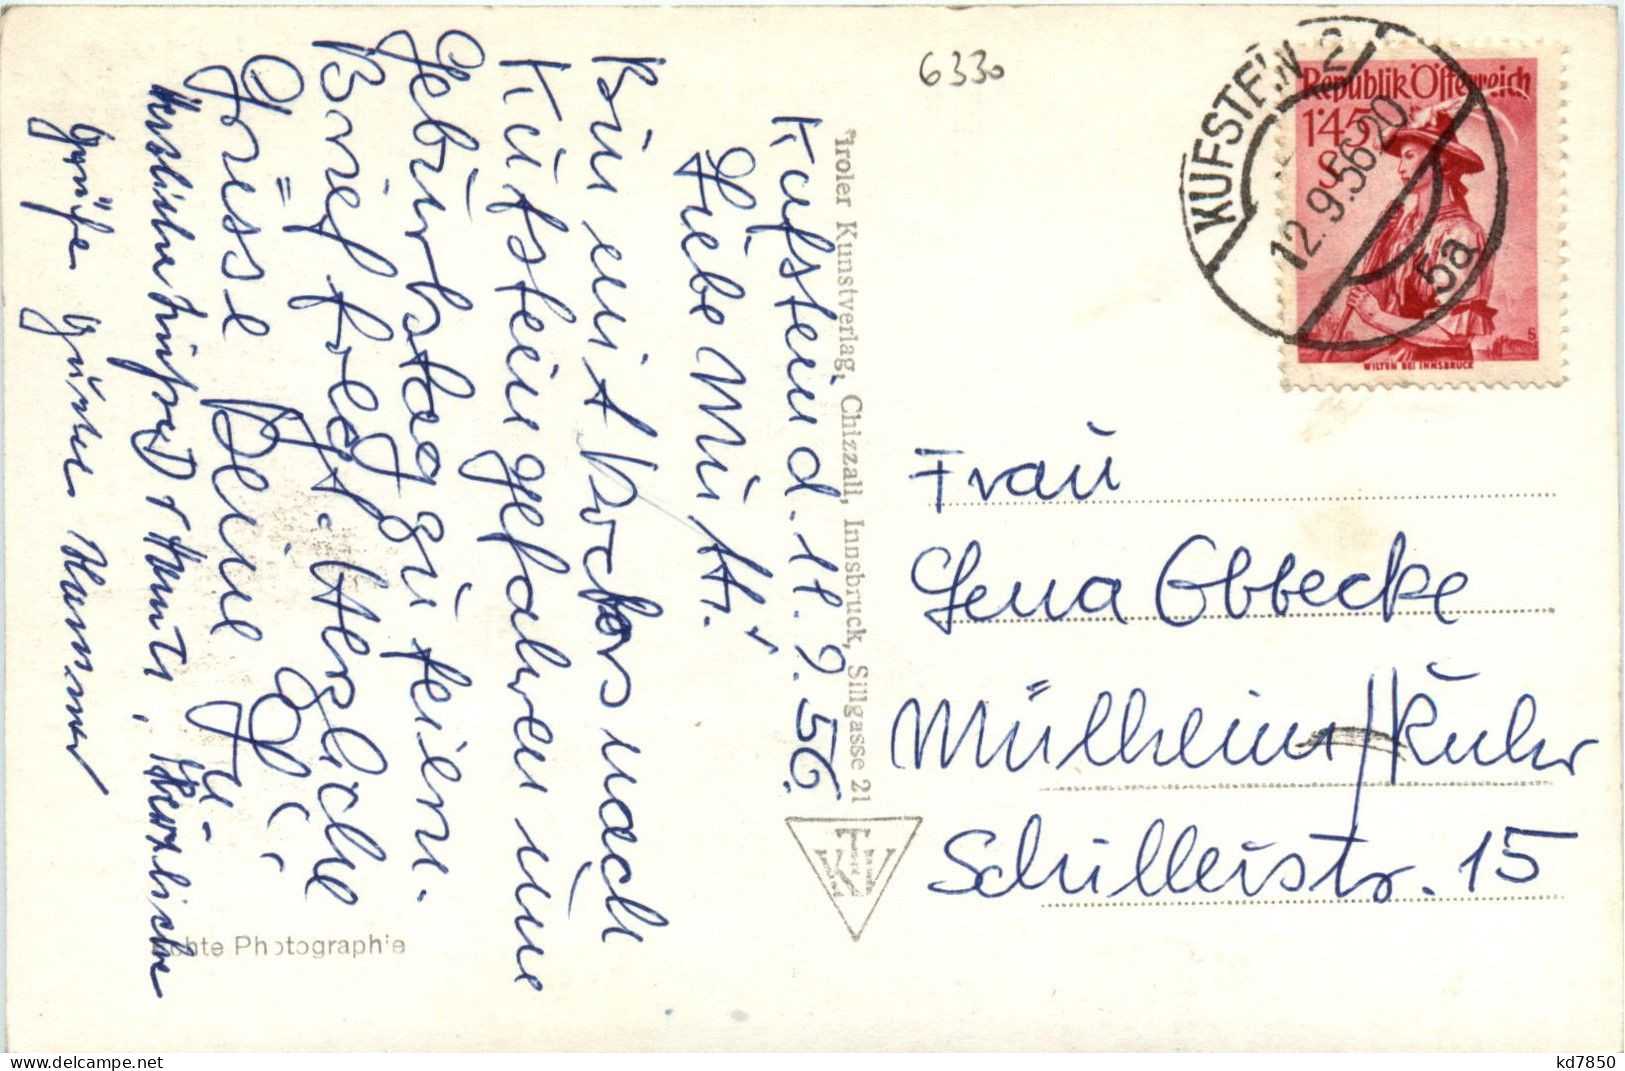 Kufstein d. 11.9.56.
Liebe Mutti!
Bin mit Kochs nach
Kufstein gefahren um
Geburtstag zu feiern.
Brief folgt. Herzliche
Grüsse Deine
Herzliche
Grüße
Tiroler Kunstverlag, Chizzali, Innsbruck, Sillgasse 21
Echte Photographie
6330
KUFSTEIN 2
12.9.56.20
5a
Republik Österreich
1'45
S
WILTEN BEI INNSBRUCK
Frau
Lena Obbecke
Mülheim/Ruhr
Schillerstr. 15
kd7850